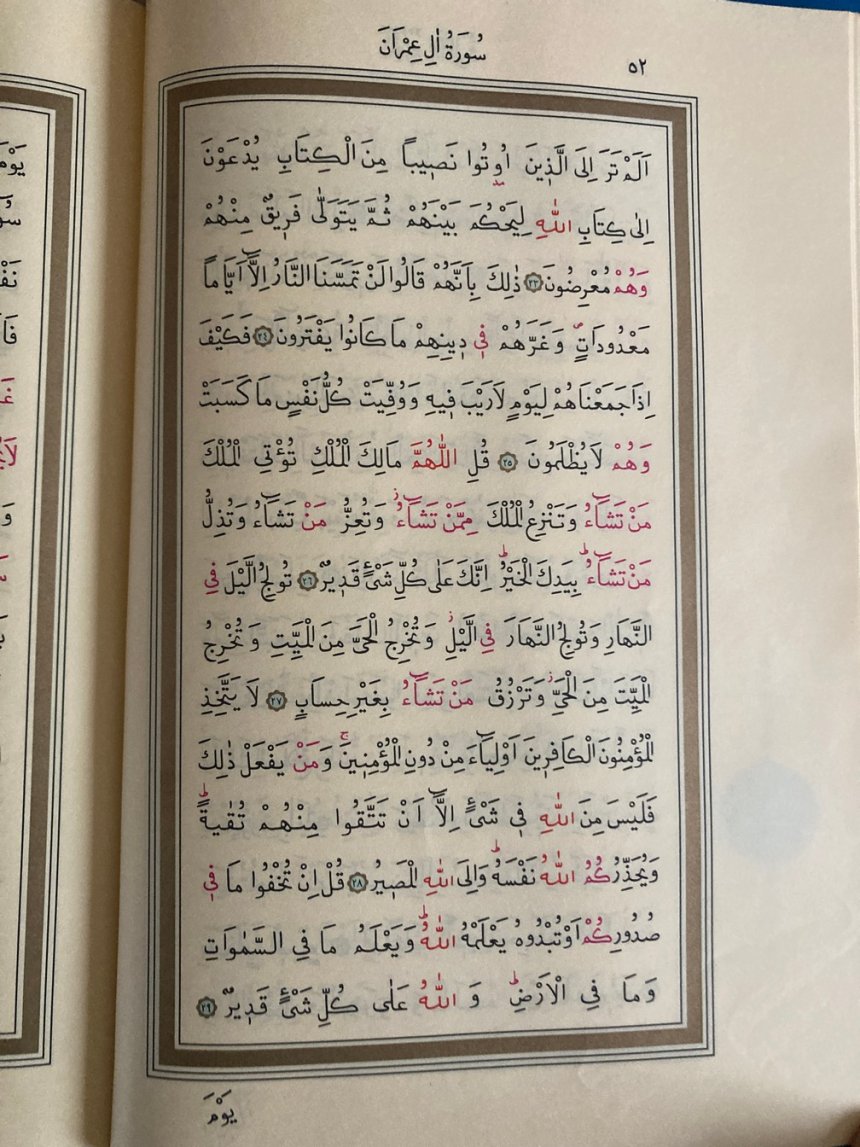 سُورَةُ اٰلِ عِمْرَانَ
٥٢
اَلَمْ تَرَ اِلَى الَّذ۪ينَ اُو۫تُوا نَص۪يباً مِنَ الْكِتَابِ يُدْعَوْنَ
اِلٰى كِتَابِ اللّٰهِ لِيَحْكُمَ بَيْنَهُمْ ثُمَّ يَتَوَلّٰى فَر۪يقٌ مِنْهُمْ
وَهُمْ مُعْرِضُونَ ﴿٢٣﴾ ذٰلِكَ بِاَنَّهُمْ قَالُوا لَنْ تَمَسَّنَا النَّارُ اِلَّٓا اَيَّاماً
مَعْدُودَاتٍۖ وَغَرَّهُمْ ف۪ي د۪ينِهِمْ مَا كَانُوا يَفْتَرُونَ ﴿٢٤﴾ فَكَيْفَ
اِذَا جَمَعْنَاهُمْ لِيَوْمٍ لَا رَيْبَ ف۪يهِ وَوُفِّيَتْ كُلُّ نَفْسٍ مَا كَسَبَتْ
وَهُمْ لَا يُظْلَمُونَ ﴿٢٥﴾ قُلِ اللّٰهُمَّ مَالِكَ الْمُلْكِ تُؤْتِي الْمُلْكَ
مَنْ تَشَٓاءُ وَتَنْزِعُ الْمُلْكَ مِمَّنْ تَشَٓاءُۘ وَتُعِزُّ مَنْ تَشَٓاءُ وَتُذِلُّ
مَنْ تَشَٓاءُۜ بِيَدِكَ الْخَيْرُۜ اِنَّكَ عَلٰى كُلِّ شَيْءٍ قَد۪يرٌ ﴿٢٦﴾ تُولِجُ الَّيْلَ فِي
النَّهَارِ وَتُولِجُ النَّهَارَ فِي الَّيْلِۘ وَتُخْرِجُ الْحَيَّ مِنَ الْمَيِّتِ وَتُخْرِجُ
الْمَيِّتَ مِنَ الْحَيِّۘ وَتَرْزُقُ مَنْ تَشَٓاءُ بِغَيْرِ حِسَابٍ ﴿٢٧﴾ لَا يَتَّخِذِ
الْمُؤْمِنُونَ الْكَافِر۪ينَ اَوْلِيَٓاءَ مِنْ دُونِ الْمُؤْمِن۪ينَۚ وَمَنْ يَفْعَلْ ذٰلِكَ
فَلَيْسَ مِنَ اللّٰهِ ف۪ي شَيْءٍ اِلَّٓا اَنْ تَتَّقُوا مِنْهُمْ تُقٰيةًۜ
وَيُحَذِّرُكُمُ اللّٰهُ نَفْسَهُۜ وَاِلَى اللّٰهِ الْمَص۪يرُ ﴿٢٨﴾ قُلْ اِنْ تُخْفُوا مَا ف۪ي
صُدُورِكُمْ اَوْ تُبْدُوهُ يَعْلَمْهُ اللّٰهُۜ وَيَعْلَمُ مَا فِي السَّمٰوَاتِ
وَمَا فِي الْاَرْضِۜ وَاللّٰهُ عَلٰى كُلِّ شَيْءٍ قَد۪يرٌ ﴿٢٩﴾
يَوْمَ